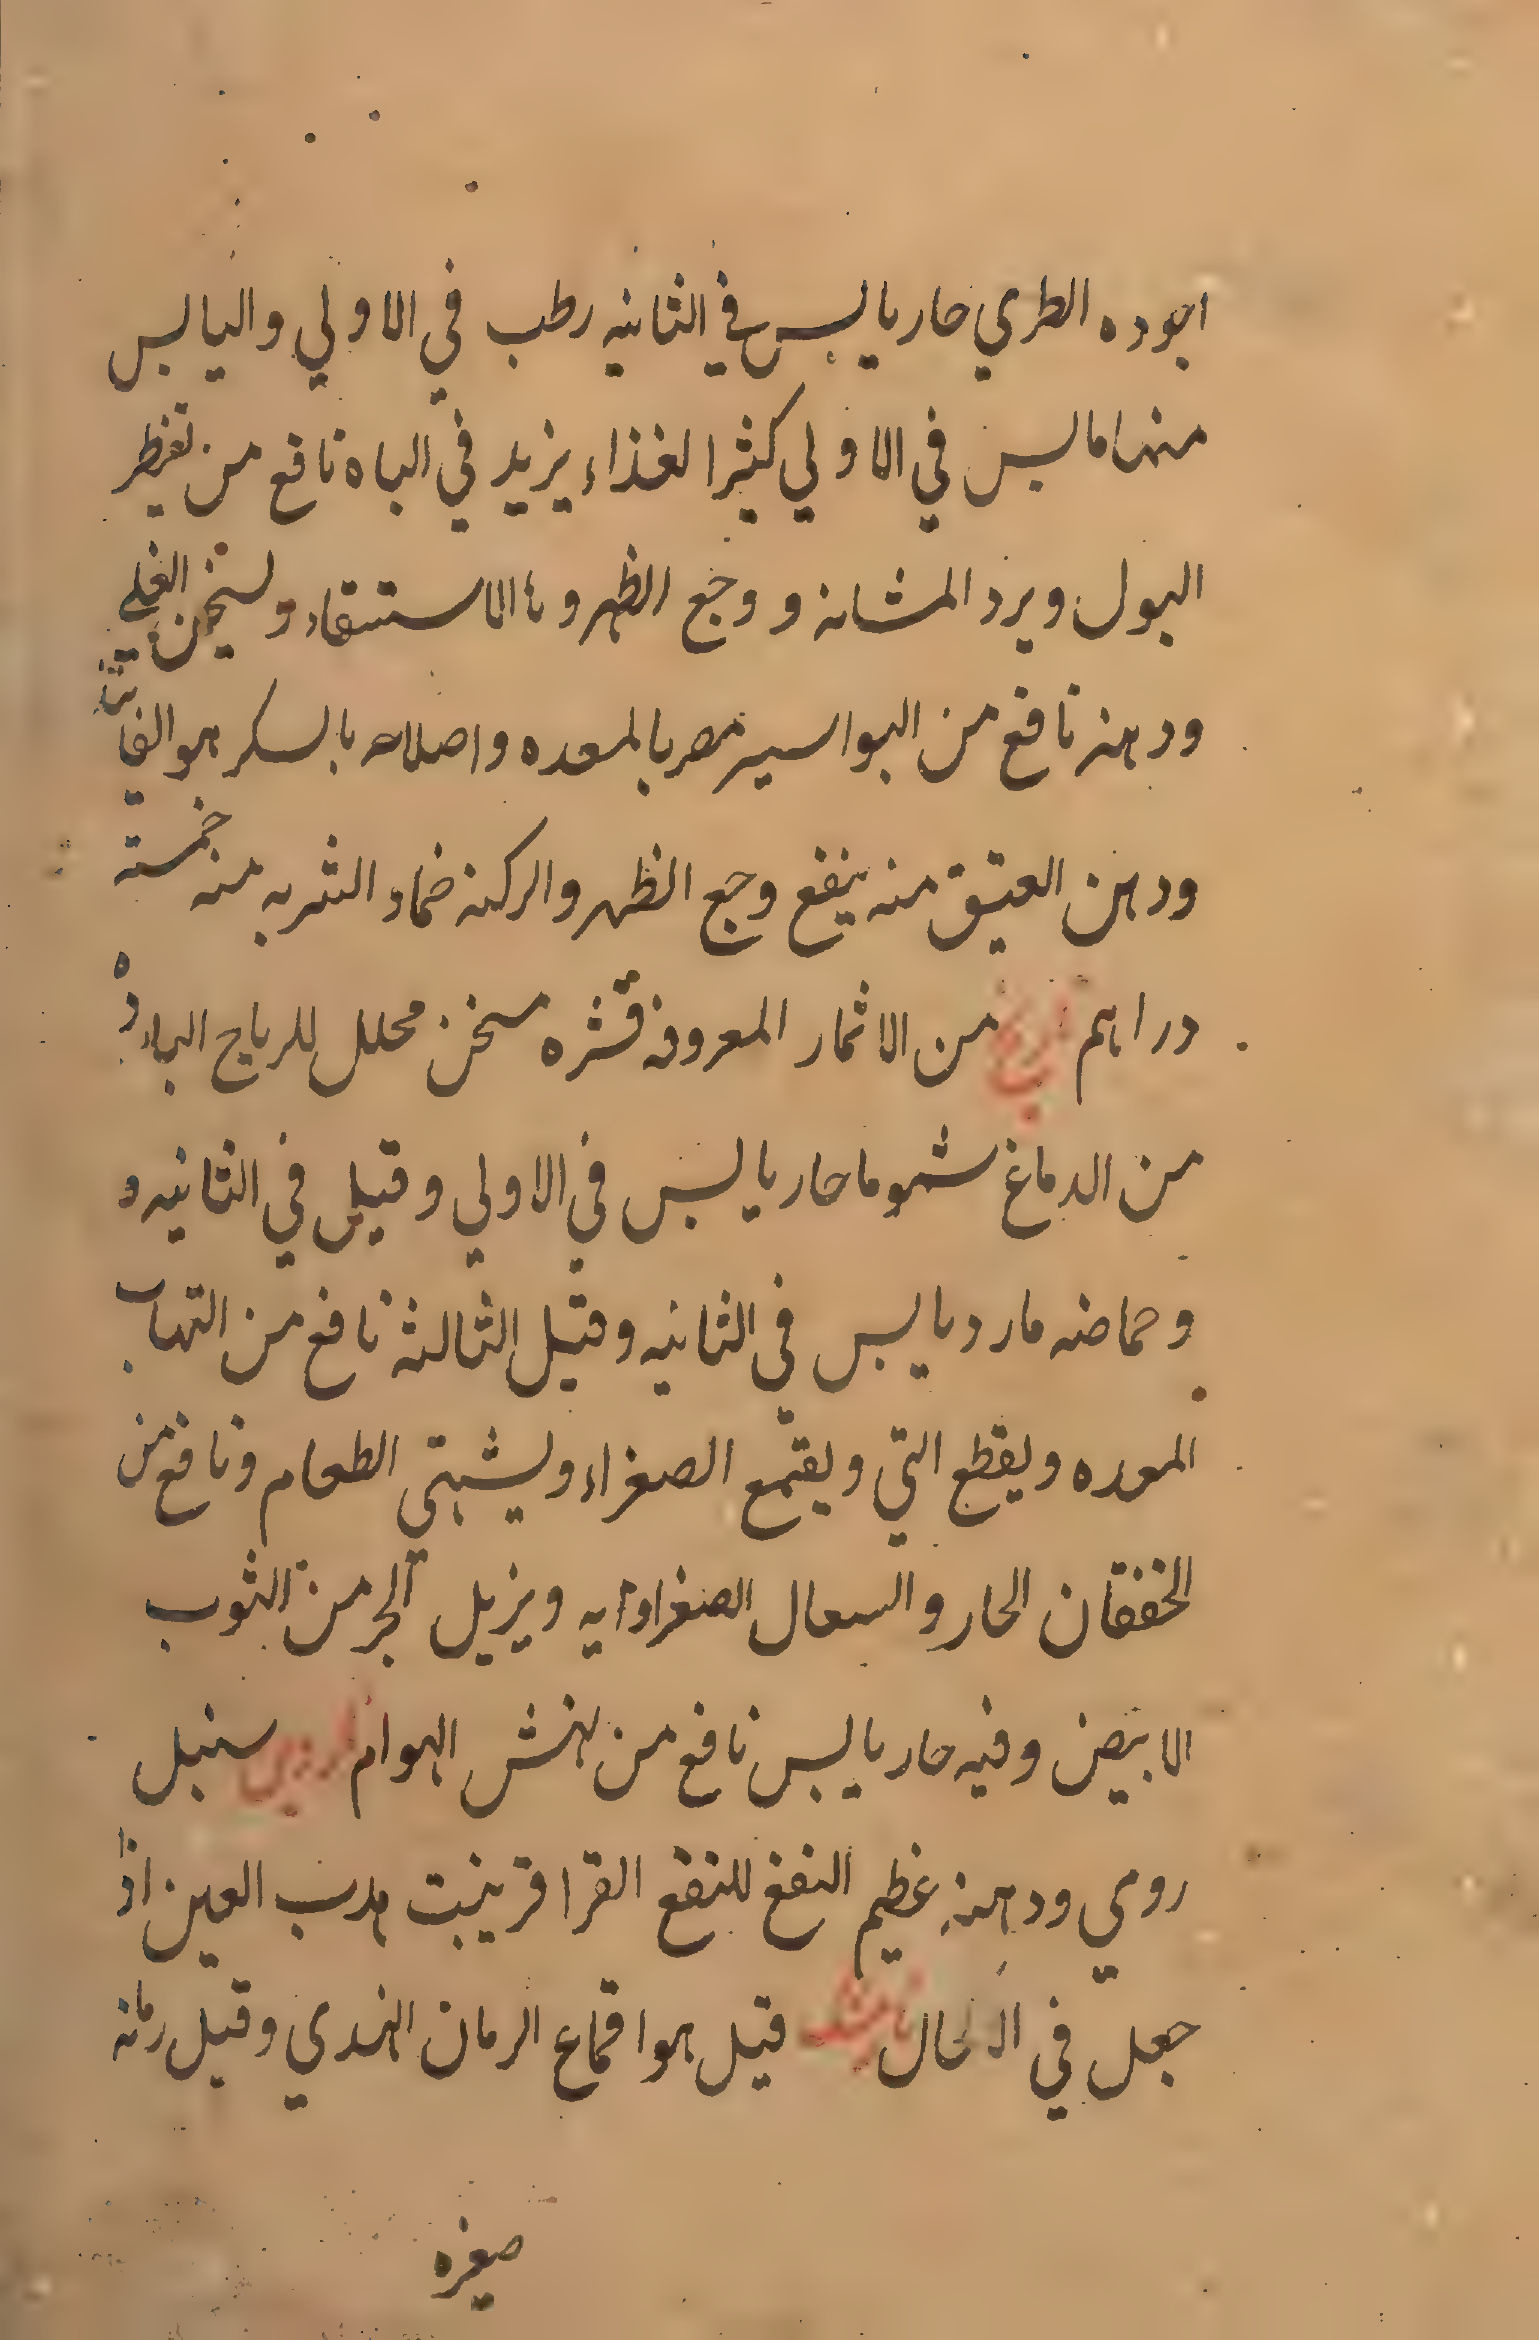 اجوده الطري حار يابس في الثانيه رطب في الاولي واليابس
منها مابس في الاولي كثير الغذاء يزيد في الباه نافع من تقطر
البول وبرد المشانه ووجع الظهر و الاستسقاء ويسخن الغلي
ودهنه نافع من البواسير مضر بالمعده واصلاحه بالسكر هو الفايق
ودهن العتيق منه ينفع وجع الظهر والركبه ضماد الشربه منه خمسة
دراهم اترج من الاثمار المعروفه قشره مسخن محلل للرياح البارده
من الدماغ شموما حار يابس في الاولي وقيل في الثانيه و
وحماضه بارد يابس في الثانيه وقيل الثالثه نافع من التهاب
المعده ويقطع القي ويقمع الصفراء ويشهي الطعام ونافع من
الخفقان الحار والسعال الصفراوايه ويزيل الحبر من الثوب
الابيض وفيه حار يابس نافع من نهش الهوام سنبل
رومي ودهنه عظيم النفع للنفع القراقر ينبت هدب العين اذا
جعل في الاكحال نارمشك قيل هو اقماع الرمان الهندي وقيل رمانه
صغيره